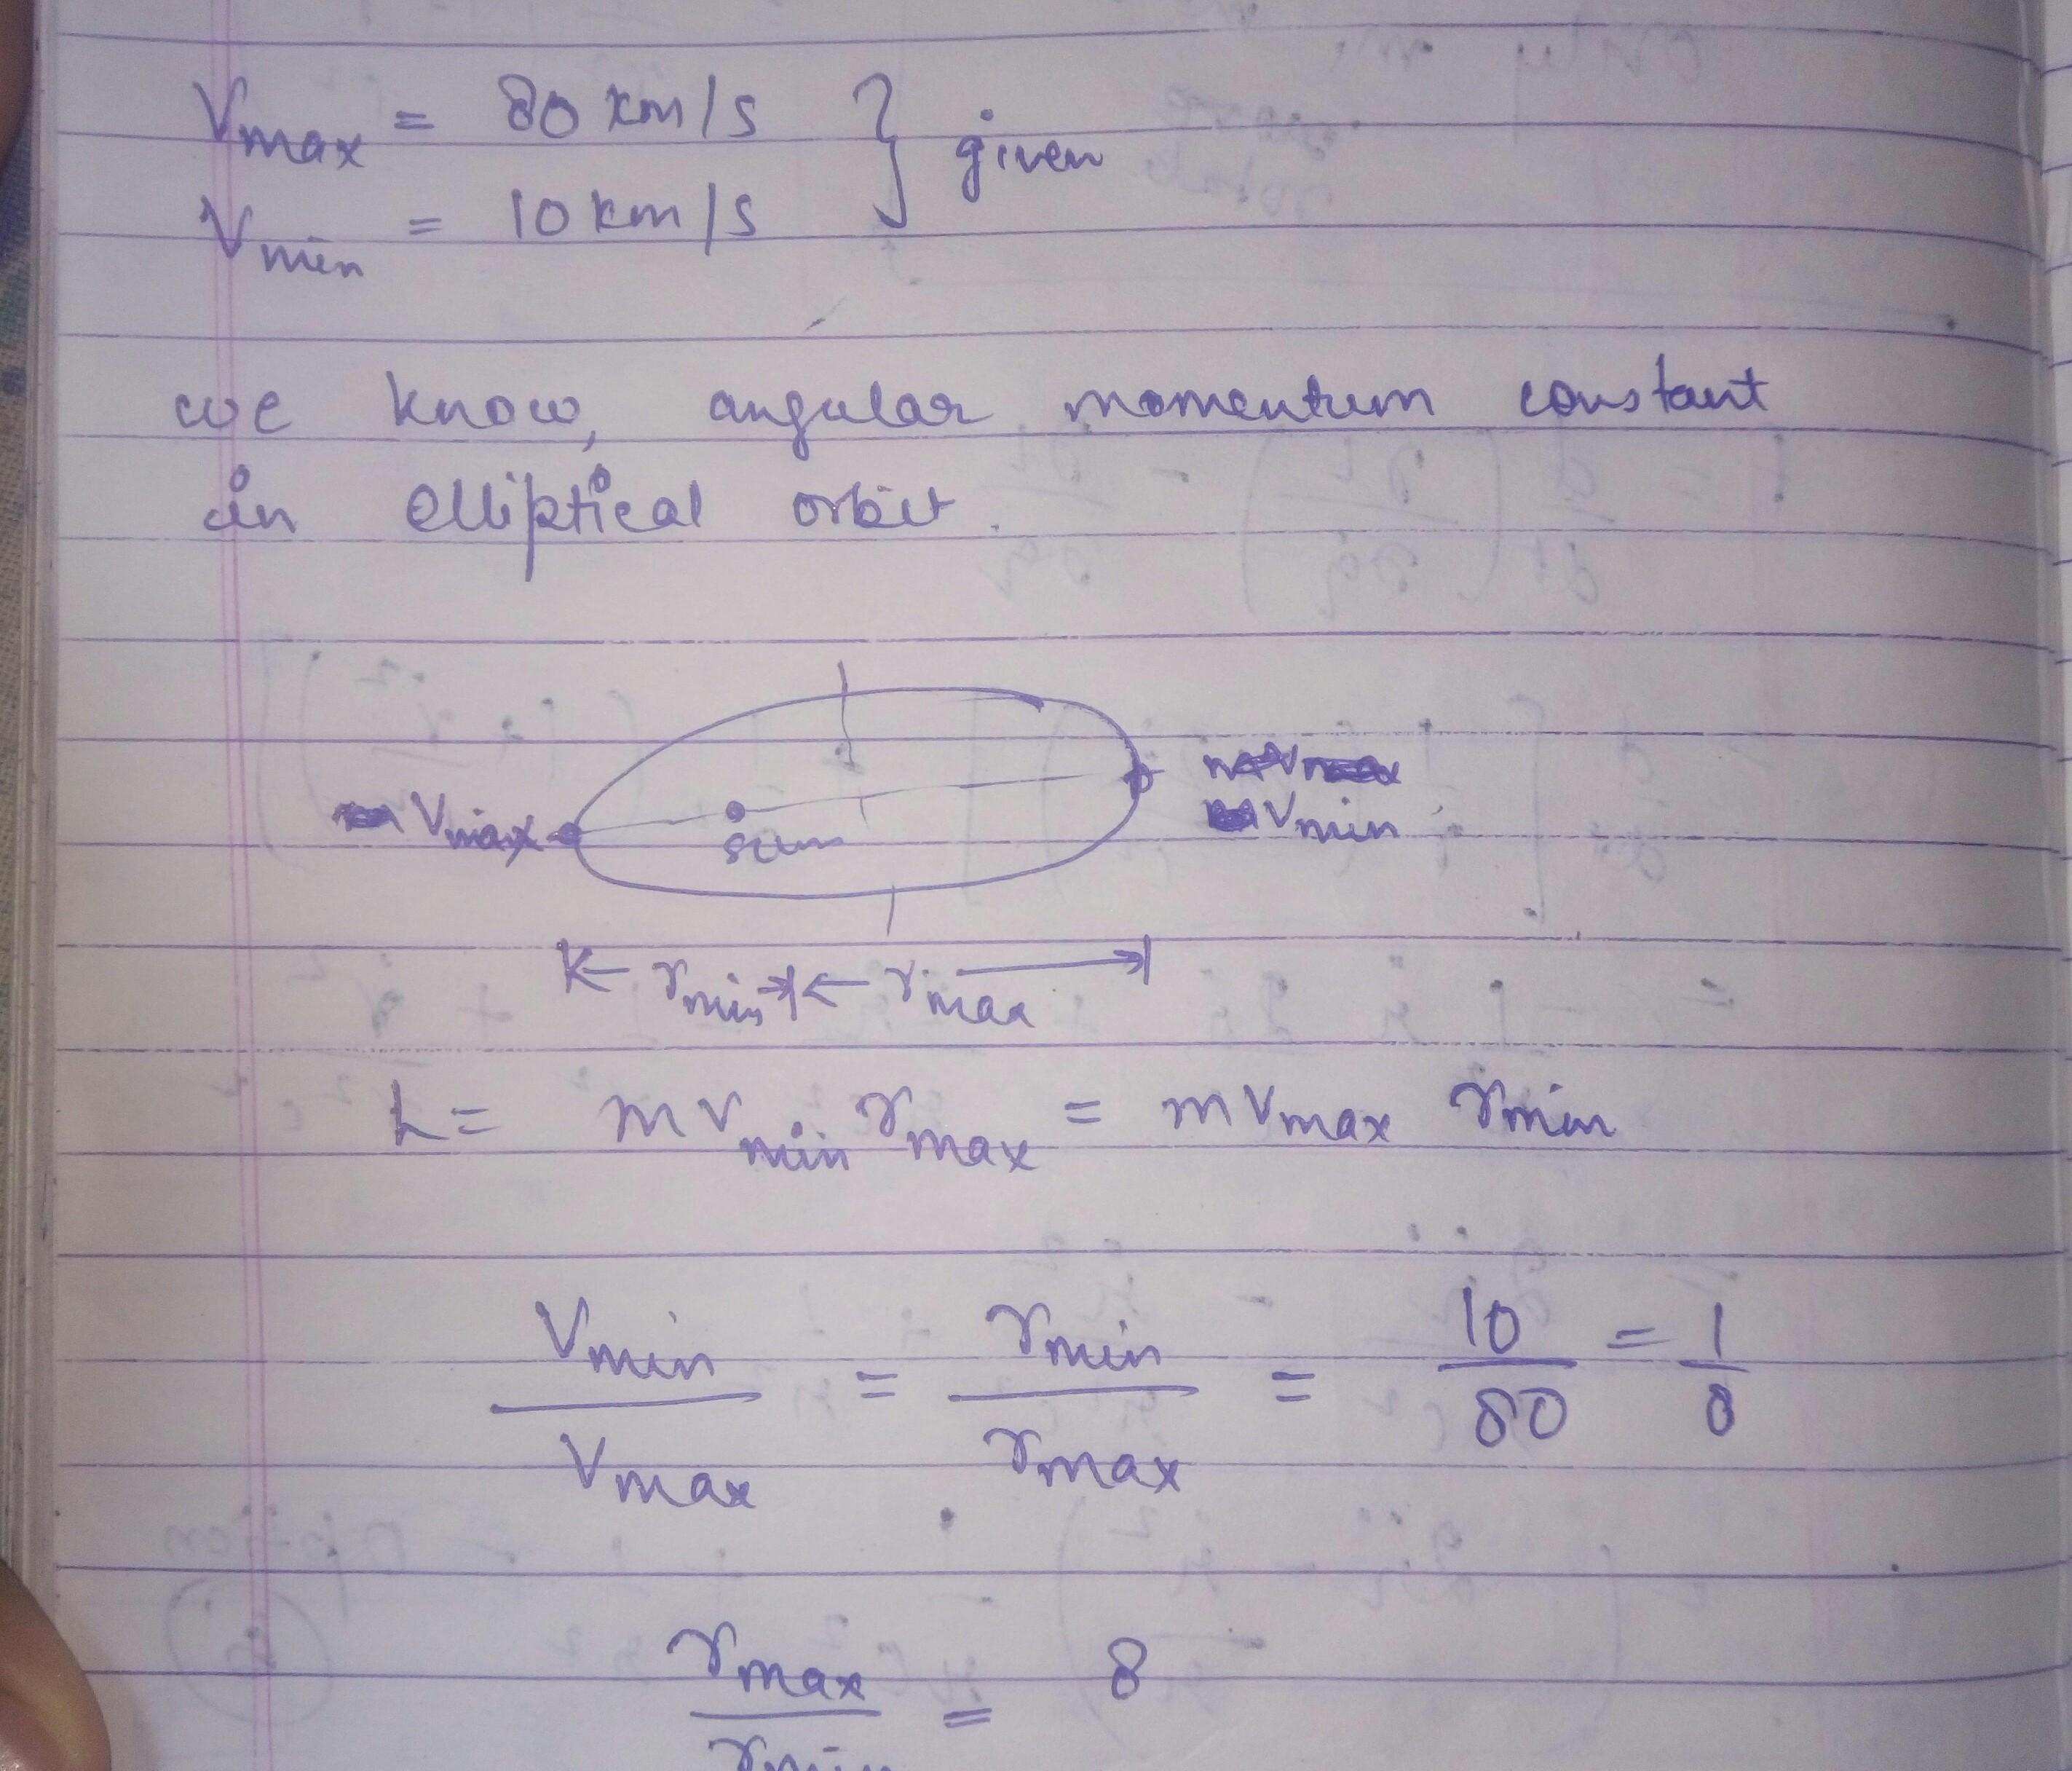 Vmax = 80 km/s } given
Vmin = 10 km/s
we know, angular momentum constant
in elliptical orbit.
Vmax
sun
Vmin
rmin rmax
L = m vmin rmax = m vmax rmin
Vmin / Vmax = rmin / rmax = 10 / 80 = 1 / 8
rmax / rmin = 8